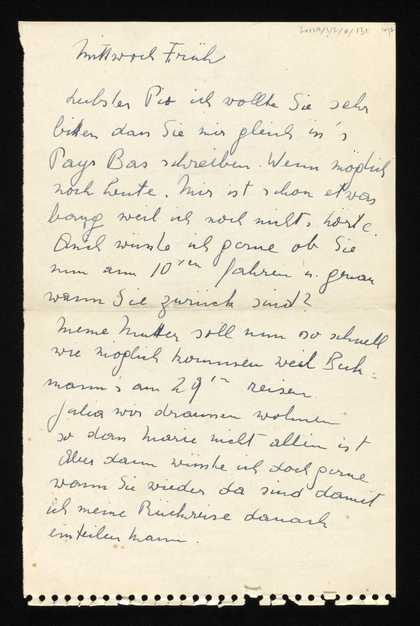 Mittwoch Früh
Liebster Pio ich wollte Sie sehr
bitten dass Sie mir gleich in's
Pays Bas schreiben. Wenn möglich
noch heute. Mir ist schon etwas
bang weil ich noch nichts hörte.
Auch wüsste ich gerne ob Sie
nun am 10ten fahren u. genau
wann Sie zurück sind?
Meine Mutter soll nun so schnell
wie möglich kommen weil Beck-
mann's am 29ten reisen.
Julia wird draussen wohnen
so dass Marie nicht allein ist
Aber dann wüsste ich doch gerne
wann Sie wieder da sind damit
ich meine Rückreise danach
einteilen kann.